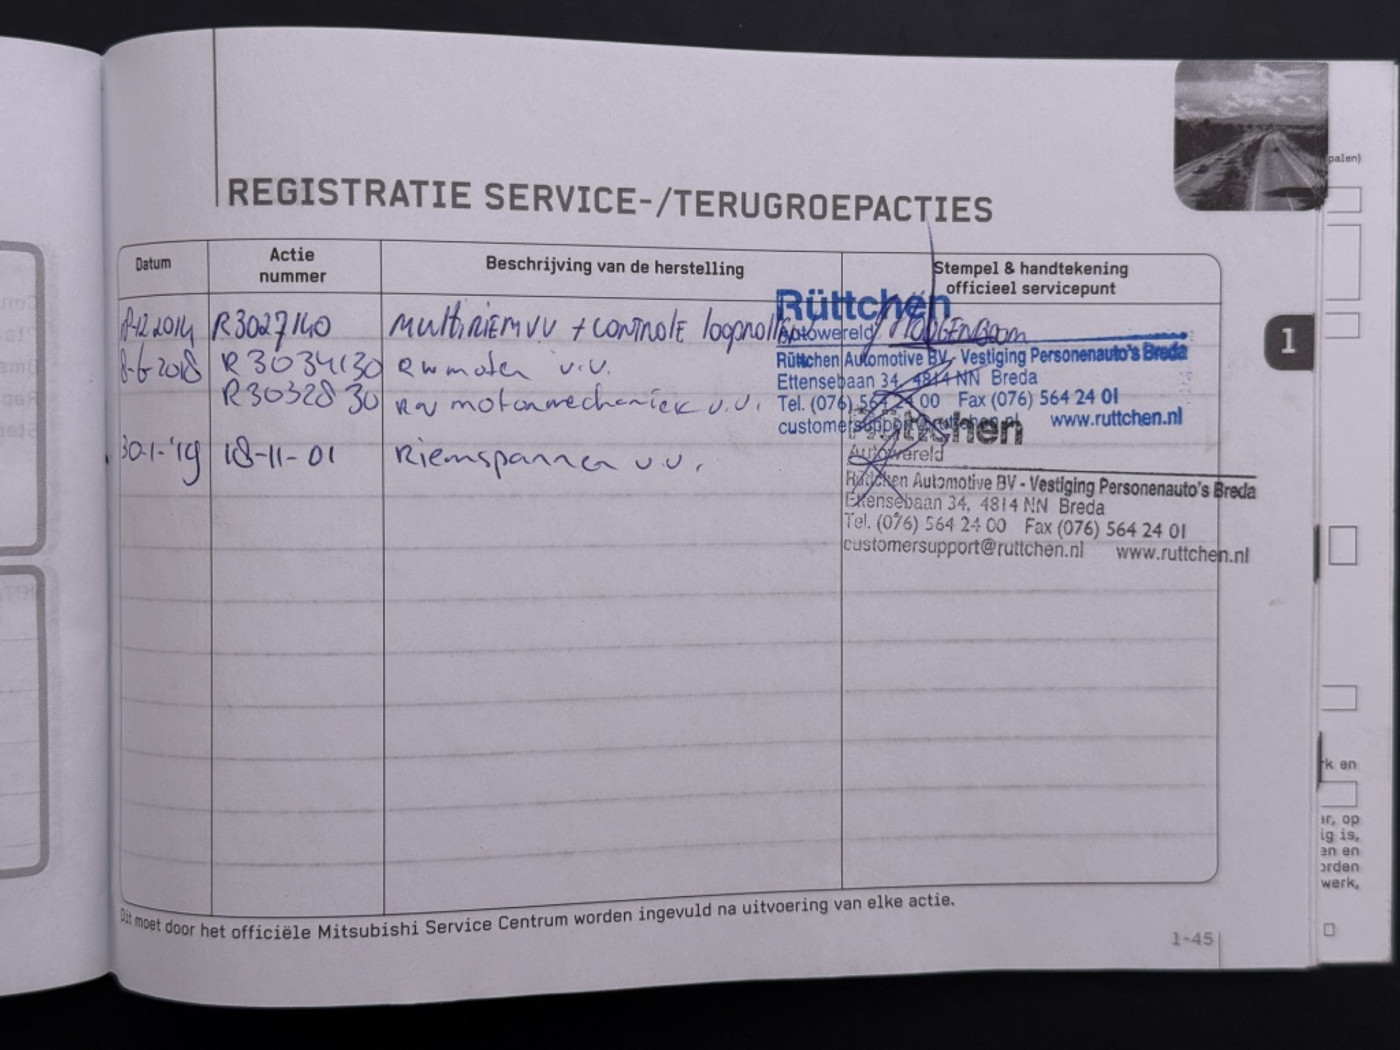 REGISTRATIE SERVICE-/TERUGROEPACTIES
Datum
Actie
nummer
Beschrijving van de herstelling
Stempel & handtekening
officieel servicepunt
8-12 2014 R3027140 MULTIRIEM V.V + CONTROLE looprollen
Rüttchen
Autowereld
HOOGENBOOM
Rüttchen Automotive BV - Vestiging Personenauto's Breda
Ettensebaan 34, 4814 NN Breda
Tel. (076) 564 24 00 Fax (076) 564 24 01
customersupport@ruttchen.nl www.ruttchen.nl
8-6-2018 R3034130 RW moten v.v.
R3032830 RW motormechaniek v.v.
30-1-'19 18-11-01 Riemspanner v.v.
Rüttchen
Autowereld
Rüttchen Automotive BV - Vestiging Personenauto's Breda
Ettensebaan 34, 4814 NN Breda
Tel. (076) 564 24 00 Fax (076) 564 24 01
customersupport@ruttchen.nl www.ruttchen.nl
Dit moet door het officiële Mitsubishi Service Centrum worden ingevuld na uitvoering van elke actie.
1-45
1
palen)
rk en
ar, op
ig is,
an en
orden
werk,